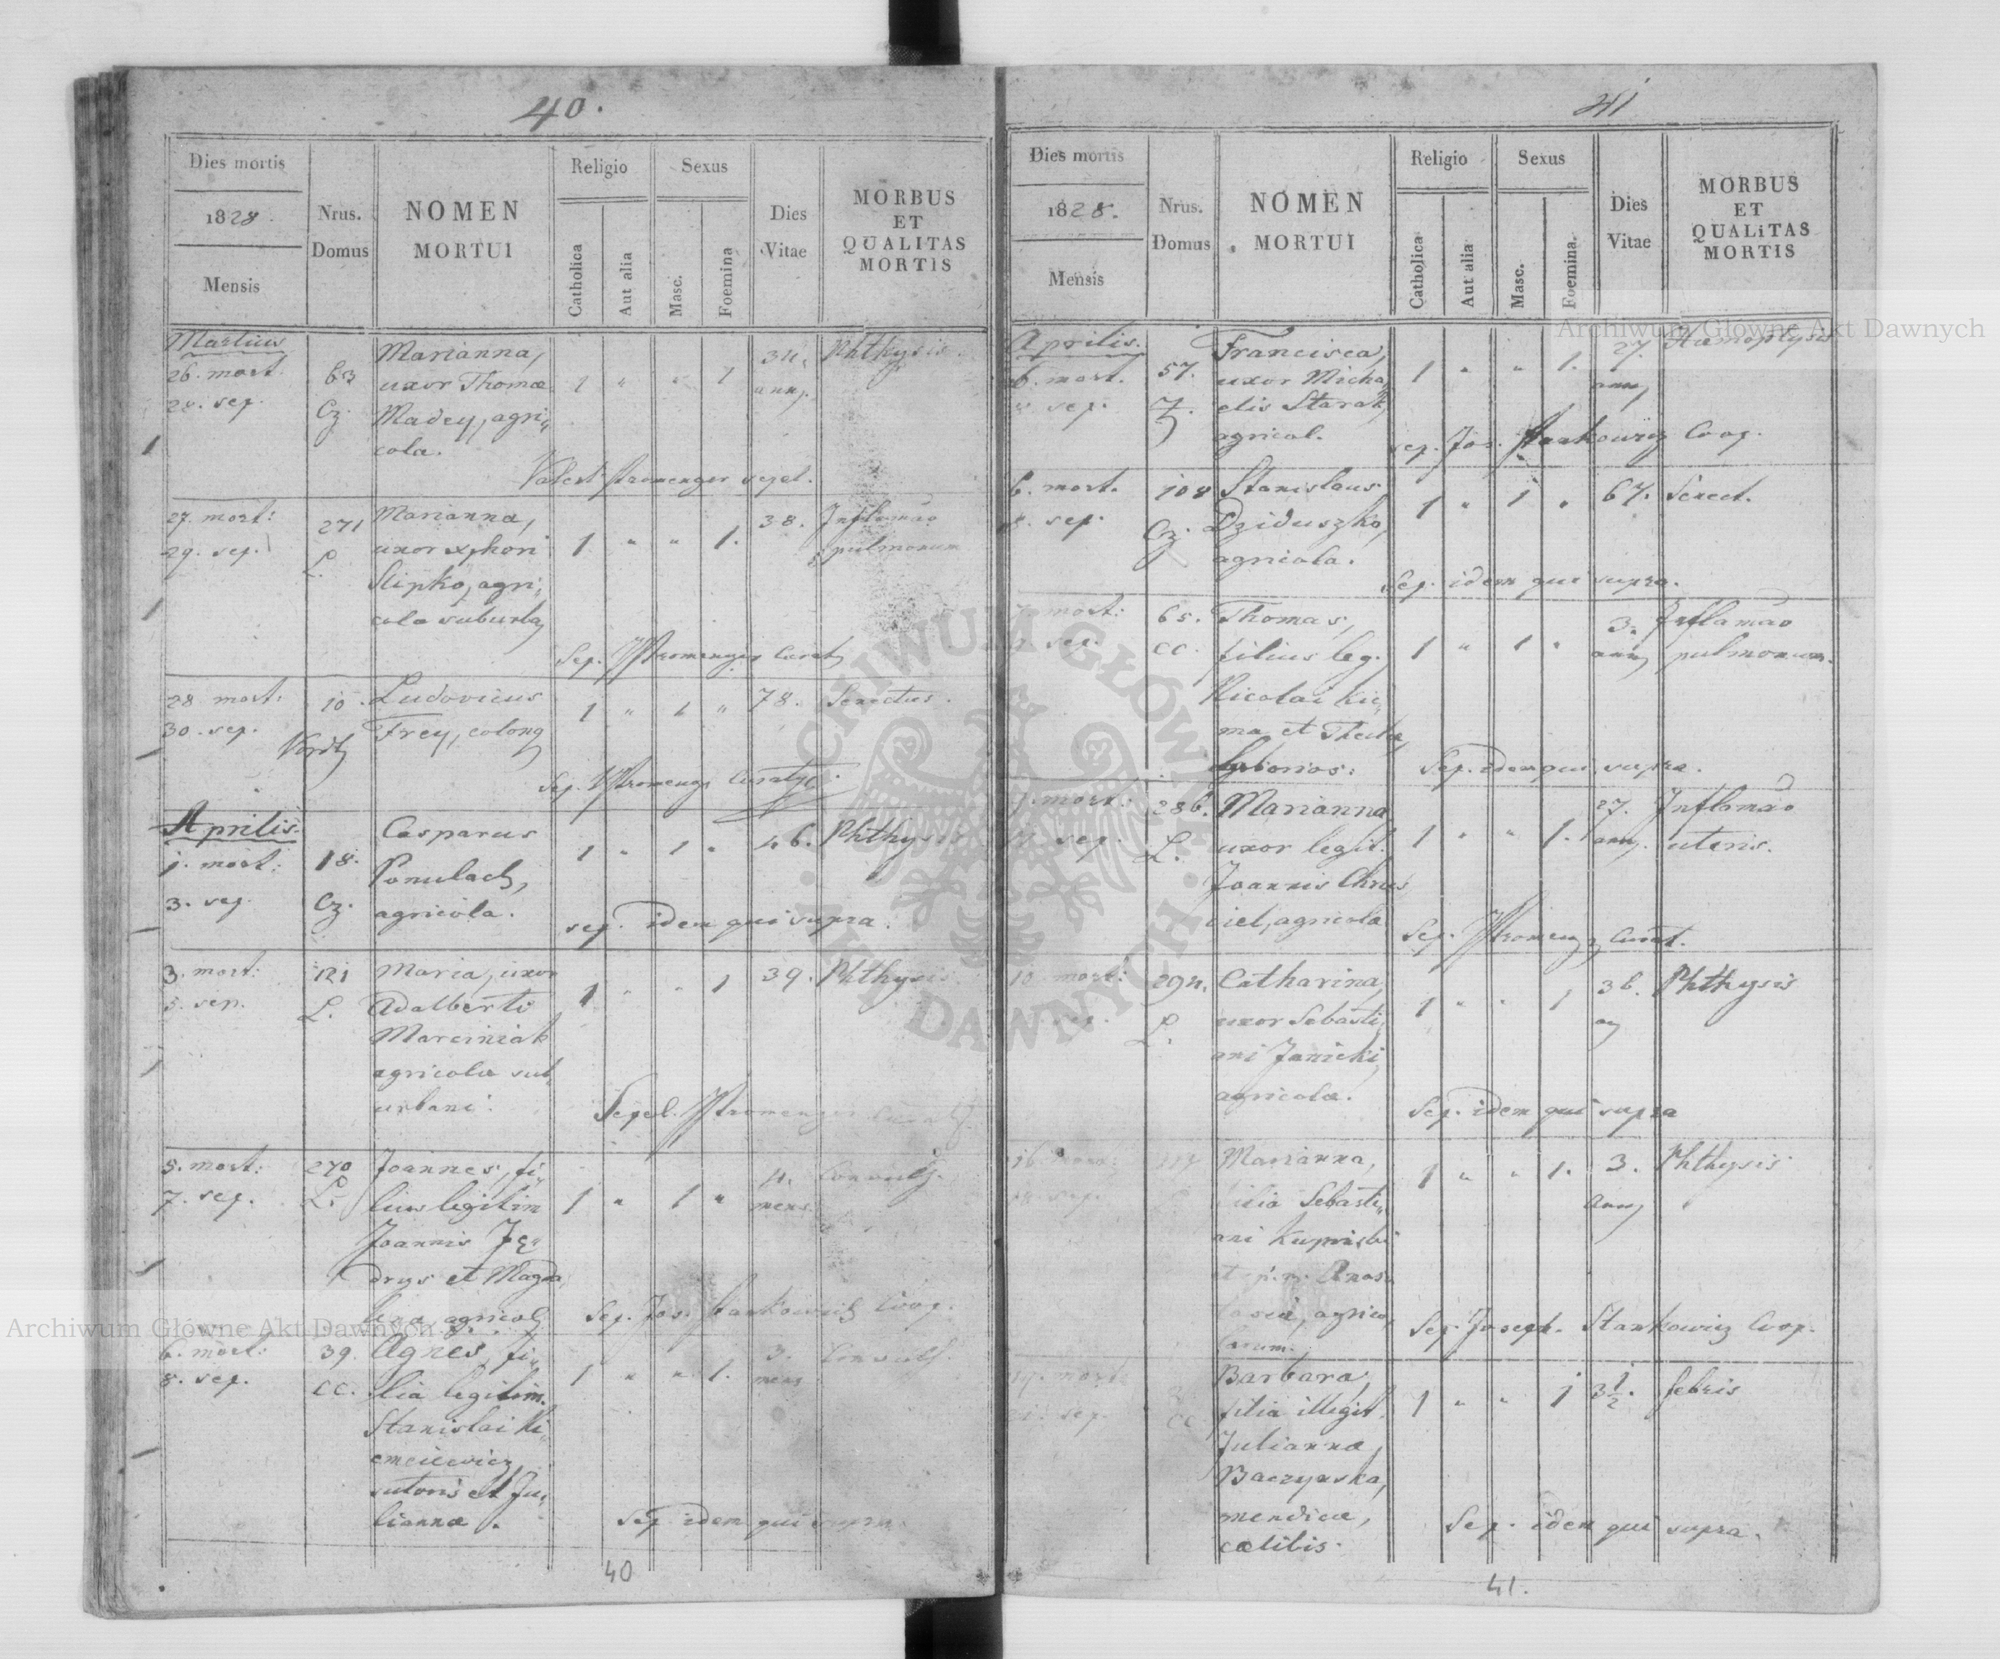 40.
Dies mortis
1828.
Mensis
Nrus.
Domus
NOMEN
MORTUI
Religio
Catholica
Aut alia
Sexus
Masc.
Foemina
Dies
Vitae
MORBUS
ET
QUALITAS
MORTIS
Martius
26. mort.
28. sep.
63
Cz.
Marianna,
uxor Thomæ
Madey, agri„
cola.
1 " " 1
34.
ann.
Phthysis.
27. mort:
29. sep.
271
L.
Marianna,
Slipko, agri„
1 " " 1.
38.
pulmonum
28 mort:
30. sep.
10.
Ludovicus
Frey, colonq
1 " 1 "
78.
Senectus.
Aprilis.
1. mort:
3. sep.
18.
Cz.
Casparus
agricola.
1 " 1 "
46.
Phthysis
sep. idem qui supra.
3. mort:
5. sep.
121
L.
Maria, uxor
Adalberti
Marciniak
agricolæ sub„
urbani.
1 " " 1
39.
Phthysis.
5. mort:
7. sep.
270
L.
Joannes, fi„
lius legitim
Joannis Ję„
drys et Magda„
lena, agricol.
1 " 1 "
4.
mens.
Convuls.
6. mort:
8. sep.
39.
CC.
Agnes, fi„
lia legitim.
Stanislai Ki„
sutoris et Ju„
lianna.
1 " " 1.
3.
mens
Convuls.
Sep. idem qui supra.
40
41
Dies mortis
1828.
Mensis
Nrus.
Domus
NOMEN
MORTUI
Religio
Catholica
Aut alia
Sexus
Masc.
Foemina.
Dies
Vitae
MORBUS
ET
QUALITAS
MORTIS
Aprilis.
6. mort.
8 sep.
57.
Francisca,
uxor Micha„
elis Starak,
agricol.
1 " " 1.
27.
ann
Hæmoptysis
sep. Jos. Stankowicz Coop.
6. mort.
8. sep.
108
Cz.
Stanislaus
Dziduszko,
agricola.
1 " 1 "
67.
Senect.
Sep. idem qui supra.
mort:
sep.
65.
CC.
Thomas,
filius leg.
Nicolai Ku„
ma et Theclæ
1 " 1 "
3.
ann
Inflamao
pulmonum.
Sep. idem qui supra.
mort:
sep.
286.
L.
Marianna
uxor legit.
Joannis Chru„
ciel, agricolæ
1 " " 1.
27.
ann.
Inflamao
uteris.
10 mort:
sep.
294.
L.
Catharina,
uxor Sebasti„
ani Janicki,
agricolæ.
1 " " 1
36.
Phthysis
Sep. idem qui supra
Marianna,
filia Sebasti„
ani
agrico„
larum.
1 " " 1.
3.
ann
Phthysis
Sep. Joseph. Stankowicz Coop.
mort:
sep.
CC
Barbara,
filia illegit.
Juliannæ
Baczynska,
mendicæ,
cælibis.
1 " " 1
3 1/2.
febris
Sep. idem qui supra.
41.
Archiwum Główne Akt Dawnych
Archiwum Główne Akt Dawnych
ARCHIWUM GŁÓWNE AKT DAWNYCH